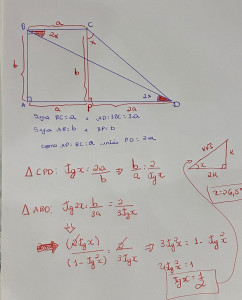 B a C
2x x
b b
2x
A a P 2a D
Seja BC = a e AD = 3BC = 3a
Seja AB = b e BP = b
como AP = BC = a então PD = 2a
Δ CPD: tg x = 2a/b ⇒ b/a = 2/tg x
x√5 x
x
2x
x = 26,5°
Δ ABD: tg 2x = b/3a = 2/3tg x
⇓
⇒ (2 tg x)/(1 - tg²x) = 2/3tg x ⇒ 3tg²x = 1 - tg²x
4tg²x = 1
tg x = 1/2